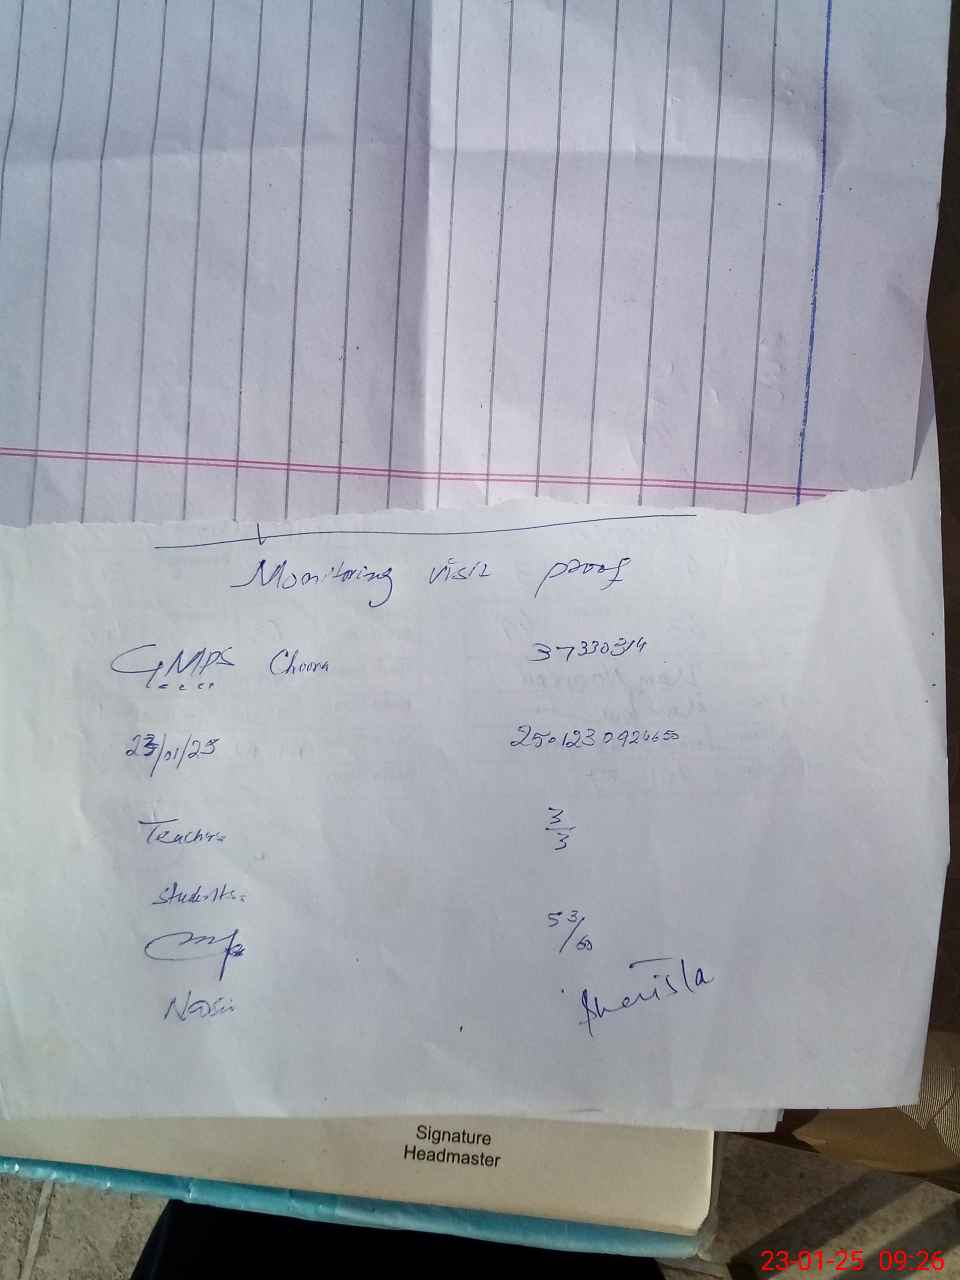 Monitoring visit proof
GMPS Choora 37330314
23/01/25 250123092465
Teachers 3/3
Students 53/60
Signature
Headmaster
23-01-25 09:26